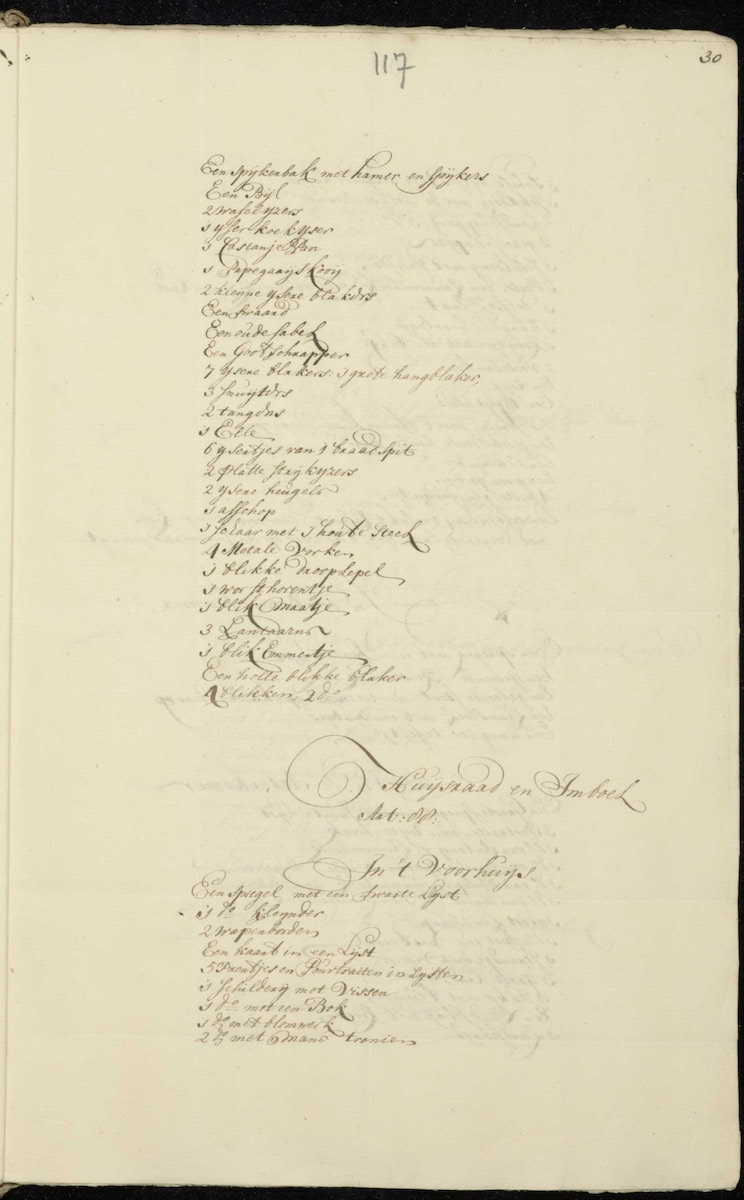 117
30
Een spijkenbak met hamer en spijkers
Een Bijl
2 wafelyzers
1 yser koekyser
1 Castanje Pan
1 Papegaaijs kooij
2 kleijne ysere blakers
Een swaard
Een oude sabel
Een Gootschrapper
7 ysere blakers: 1 groote hangblaker
3 snuijters
2 tangens
1 Elle
6 ysentjes van 't braadspit
2 Platte strykyzers
2 ysere heugels
1 asschop
1 schaar met 1 houte steel
4 Metale Vorken
1 blikke drooplepel
1 worsthorentje
1 blik maatje
3 Lantaarns
1 blik Emmertje
Een holle blikke blaker
4 blikken, 2 do
Huijsraad en Imboel
In 't Voorhuijs
Een spiegel met een swarte Lijst
1 do kleynder
2 wapenborden
Een kaart in een Lijst
5 Prentjes en Pourtraiten in Lysten
1 schilderij met Vissen
1 do met een Bok
1 do met blomwerk
2 do met mans tronien